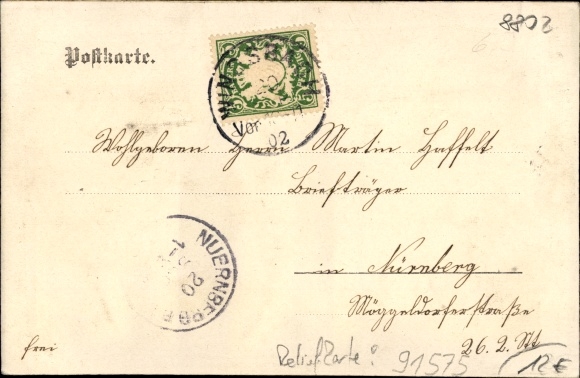 8802
Postkarte.
WINDSBACH
Vor
02
Wohlgeboren Herrn Martin Haffelt
Briefträger
in Nürnberg
Möggeldorferstraße
26. 2. Stk
NUERNBERG
20
frei
Reliefkarte:
91575
12€